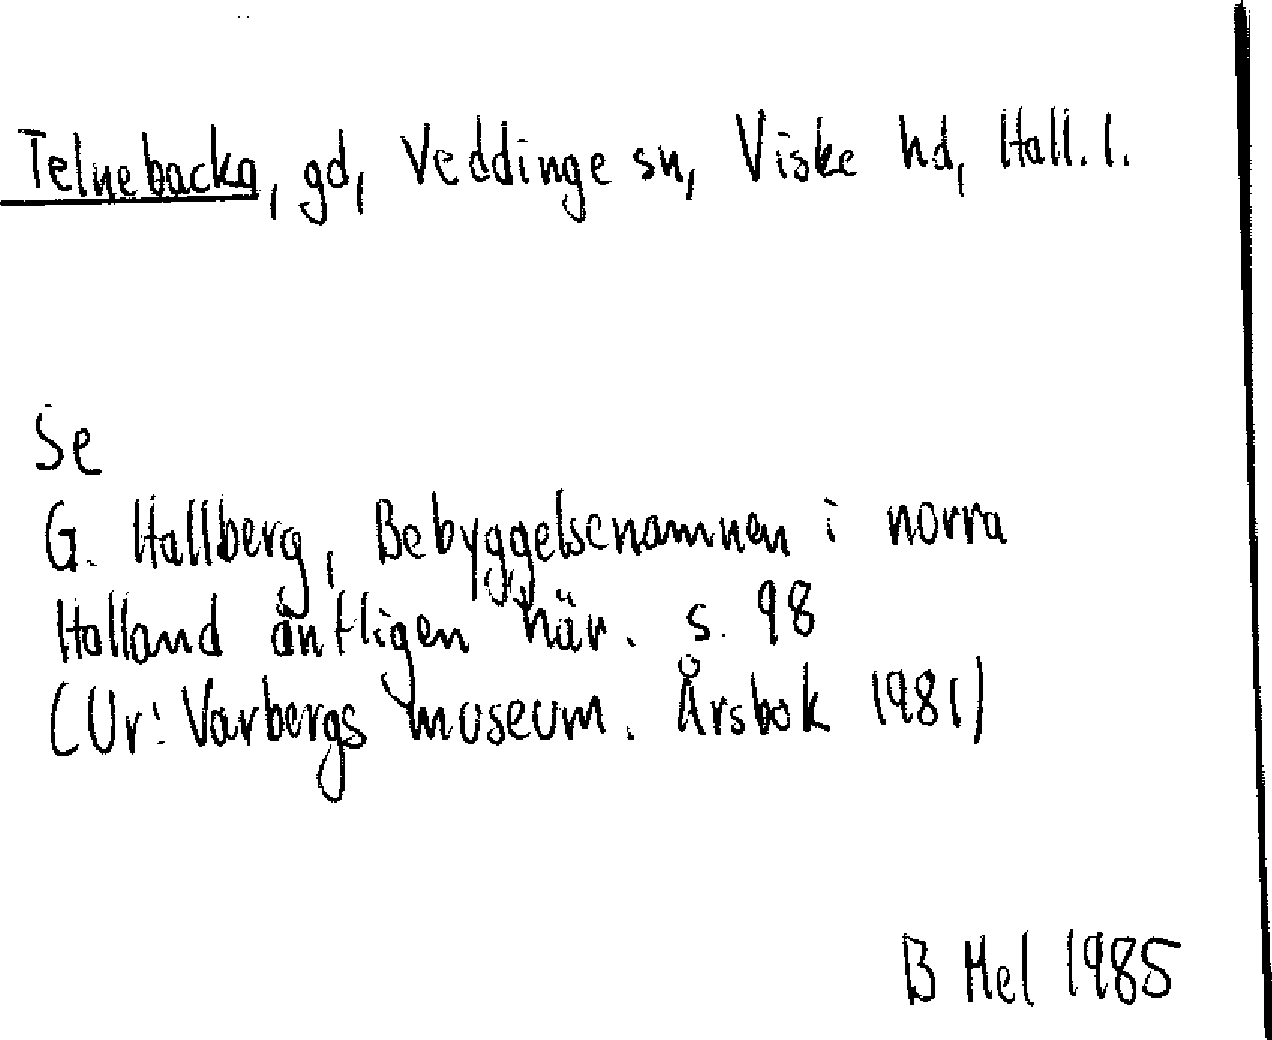 Telnebacka, gd, Veddinge sn, Viske hd, Hall. l.
Se
G. Hallberg, Bebyggelsenamnen i norra
Halland äntligen här. s. 98
(Ur: Varbergs museum. Årsbok 1981)
B Mel 1985